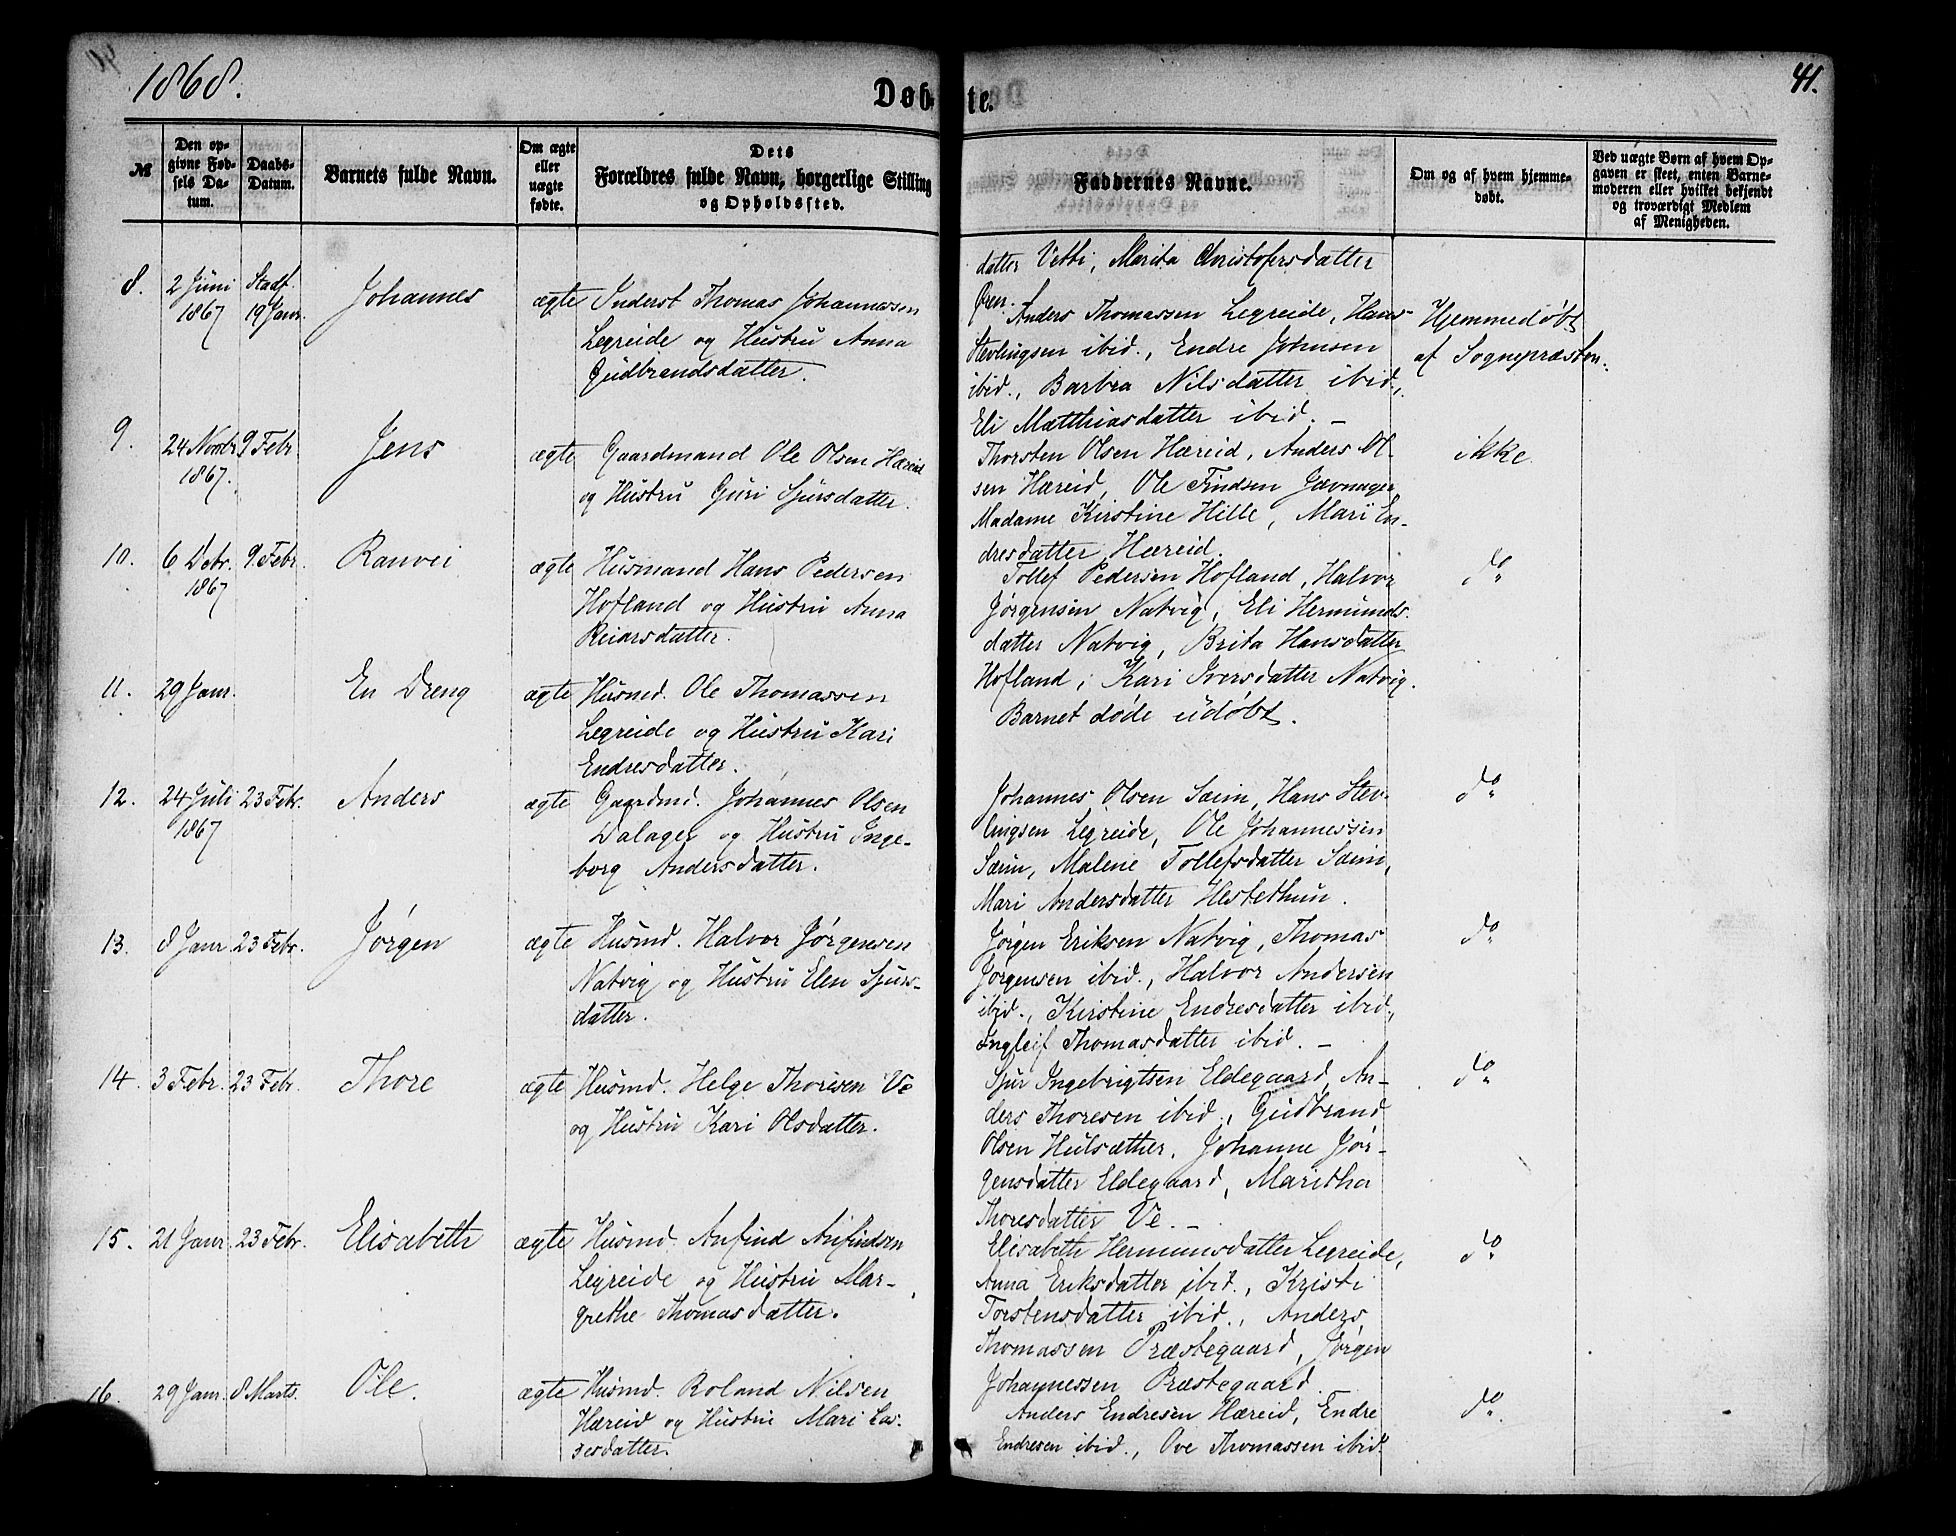 1868.
Døbte.
41.
№
Den opgivne Fødsels Datum.
Daabs-Datum.
Barnets fulde Navn.
Om ægte eller uægte fødte.
Dets Forældres fulde Navn, borgerlige Stilling og Opholdssted.
Faddernes Navne.
Om og af hvem hjemmedøbt.
Ved uægte Børn af hvem Opgaven er skeet, enten Barnemoderen eller hvilket bekjendt og troværdigt Medlem af Menigheden.
datter Vetti, Marita Christofersdatter
Øren.
8. 2 Juni 1867 Stadf. 19 Janr. Johannes ægte Inderst Thomas Johannessen
Legreide og Hustru Anna
Gudbrandsdatter.
Anders Thomassen Legreide, Hans
Stevlingsen ibid., Endre Johnsen
ibid., Barbra Nilsdatter ibid.,
Eli Matthiasdatter ibid. –
Hjemmedøbt
af Sognepræsten.
9. 24 Novbr 1867. 9 Febr. Jens ægte Gaardmand Ole Olsen Hæreid
og Hustru Guri Sjursdatter.
Thorsten Olsen Hæreid, Anders Ol-
sen Hæreid, Ole Findsen Jævnager
Madame Kirstine Hille, Mari En-
dresdatter Hæreid.
ikke.
10. 6 Debr. 1867 9 Febr. Ranvei ægte Husmand Hans Pedersen
Hofland og Hustru Anna
Reiarsdatter.
Tollef Pedersen Hofland, Halvor
Jørgensen Natvig, Eli Hermunds-
datter Natvig, Brita Hansdatter
Hofland, Kari Iversdatter Natvig.
do
11. 29 Janr. En Dreng ægte Husmd. Ole Thomassen
Legreide og Hustru Kari
Endresdatter.
Barnet døde udøbt.
12. 24 Juli 1867 23 Febr. Anders ægte Gaardmd. Johannes Olsen
Dalager og Hustru Inge-
borg Andersdatter.
Johannes Olsen Sæim, Hans Stev-
lingsen Legreide, Ole Johannessen
Sæim, Malene Tollefsdatter Sæim,
Mari Andersdatter Hestethun.
do
13. 8 Janr. 23 Febr. Jørgen ægte Husmd. Halvor Jørgensen
Natvig og Hustru Elen Sjurs-
datter.
Jørgen Eriksen Natvig, Thomas
Jørgensen ibid., Halvor Andersen
ibid., Kirstine Endresdatter ibid.,
Ingleif Thomasdatter ibid. –
do
14. 3 Febr. 23 Febr. Thore ægte Husmd. Helge Thoresen Ve
og Hustru Kari Olsdatter.
Sjur Ingebrigtsen Eldegaard, An-
ders Thoresen ibid., Gudbrand
Olsen Hulsæther, Johanne Jør-
gensdatter Eldegaard, Maritha
Thoresdatter Ve. –
do
15. 21 Janr. 23 Febr. Elisabeth ægte Husmd. Anfind Anfindsen
Legreide og Hustru Mar-
grethe Thomasdatter.
Elisabeth Hermunsdatter Legreide,
Anna Eriksdatter ibid., Kristi
Torstensdatter ibid., Anders
Thomassen Præstegaard, Jørgen
Johannessen Præstegaard.
do
16. 29 Janr. 8 Marts. Ole. ægte Husmd. Roland Nilsen
Hæreid og Hustru Mari Las-
sesdatter.
Anders Endresen Hæreid, Endre
Endresen ibid., Ove Thomassen ibid.
do